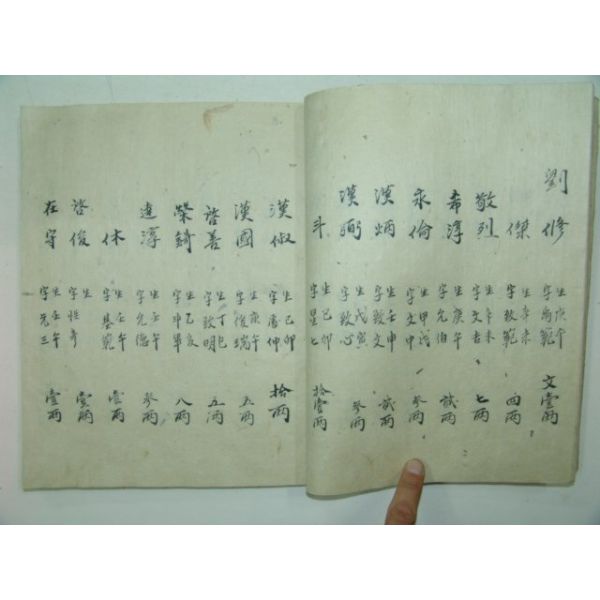 劉修 生庚午 字禹範 文壹兩
傑 生辛未 字敬範 四兩
敬烈 生辛未 字文吉 七兩
希淳 生庚午 字允伯 貳兩
永倫 生甲戌 字文中 參兩
漢炳 生壬申 字致文 貳兩
漢弼 生戊寅 字致心 參兩
斗 生己卯 字星七 拾壹兩
漢俶 生己卯 字仲 拾兩
漢國 生庚午 字俊瑞 五兩
啓善 生丁巳 字致明 五兩
榮錡 生乙亥 字申 八兩
達淳 生壬午 字允德 參兩
休 生壬午 字基範 壹兩
啓俊 生 字性 壹兩
在守 生壬午 字允三 壹兩